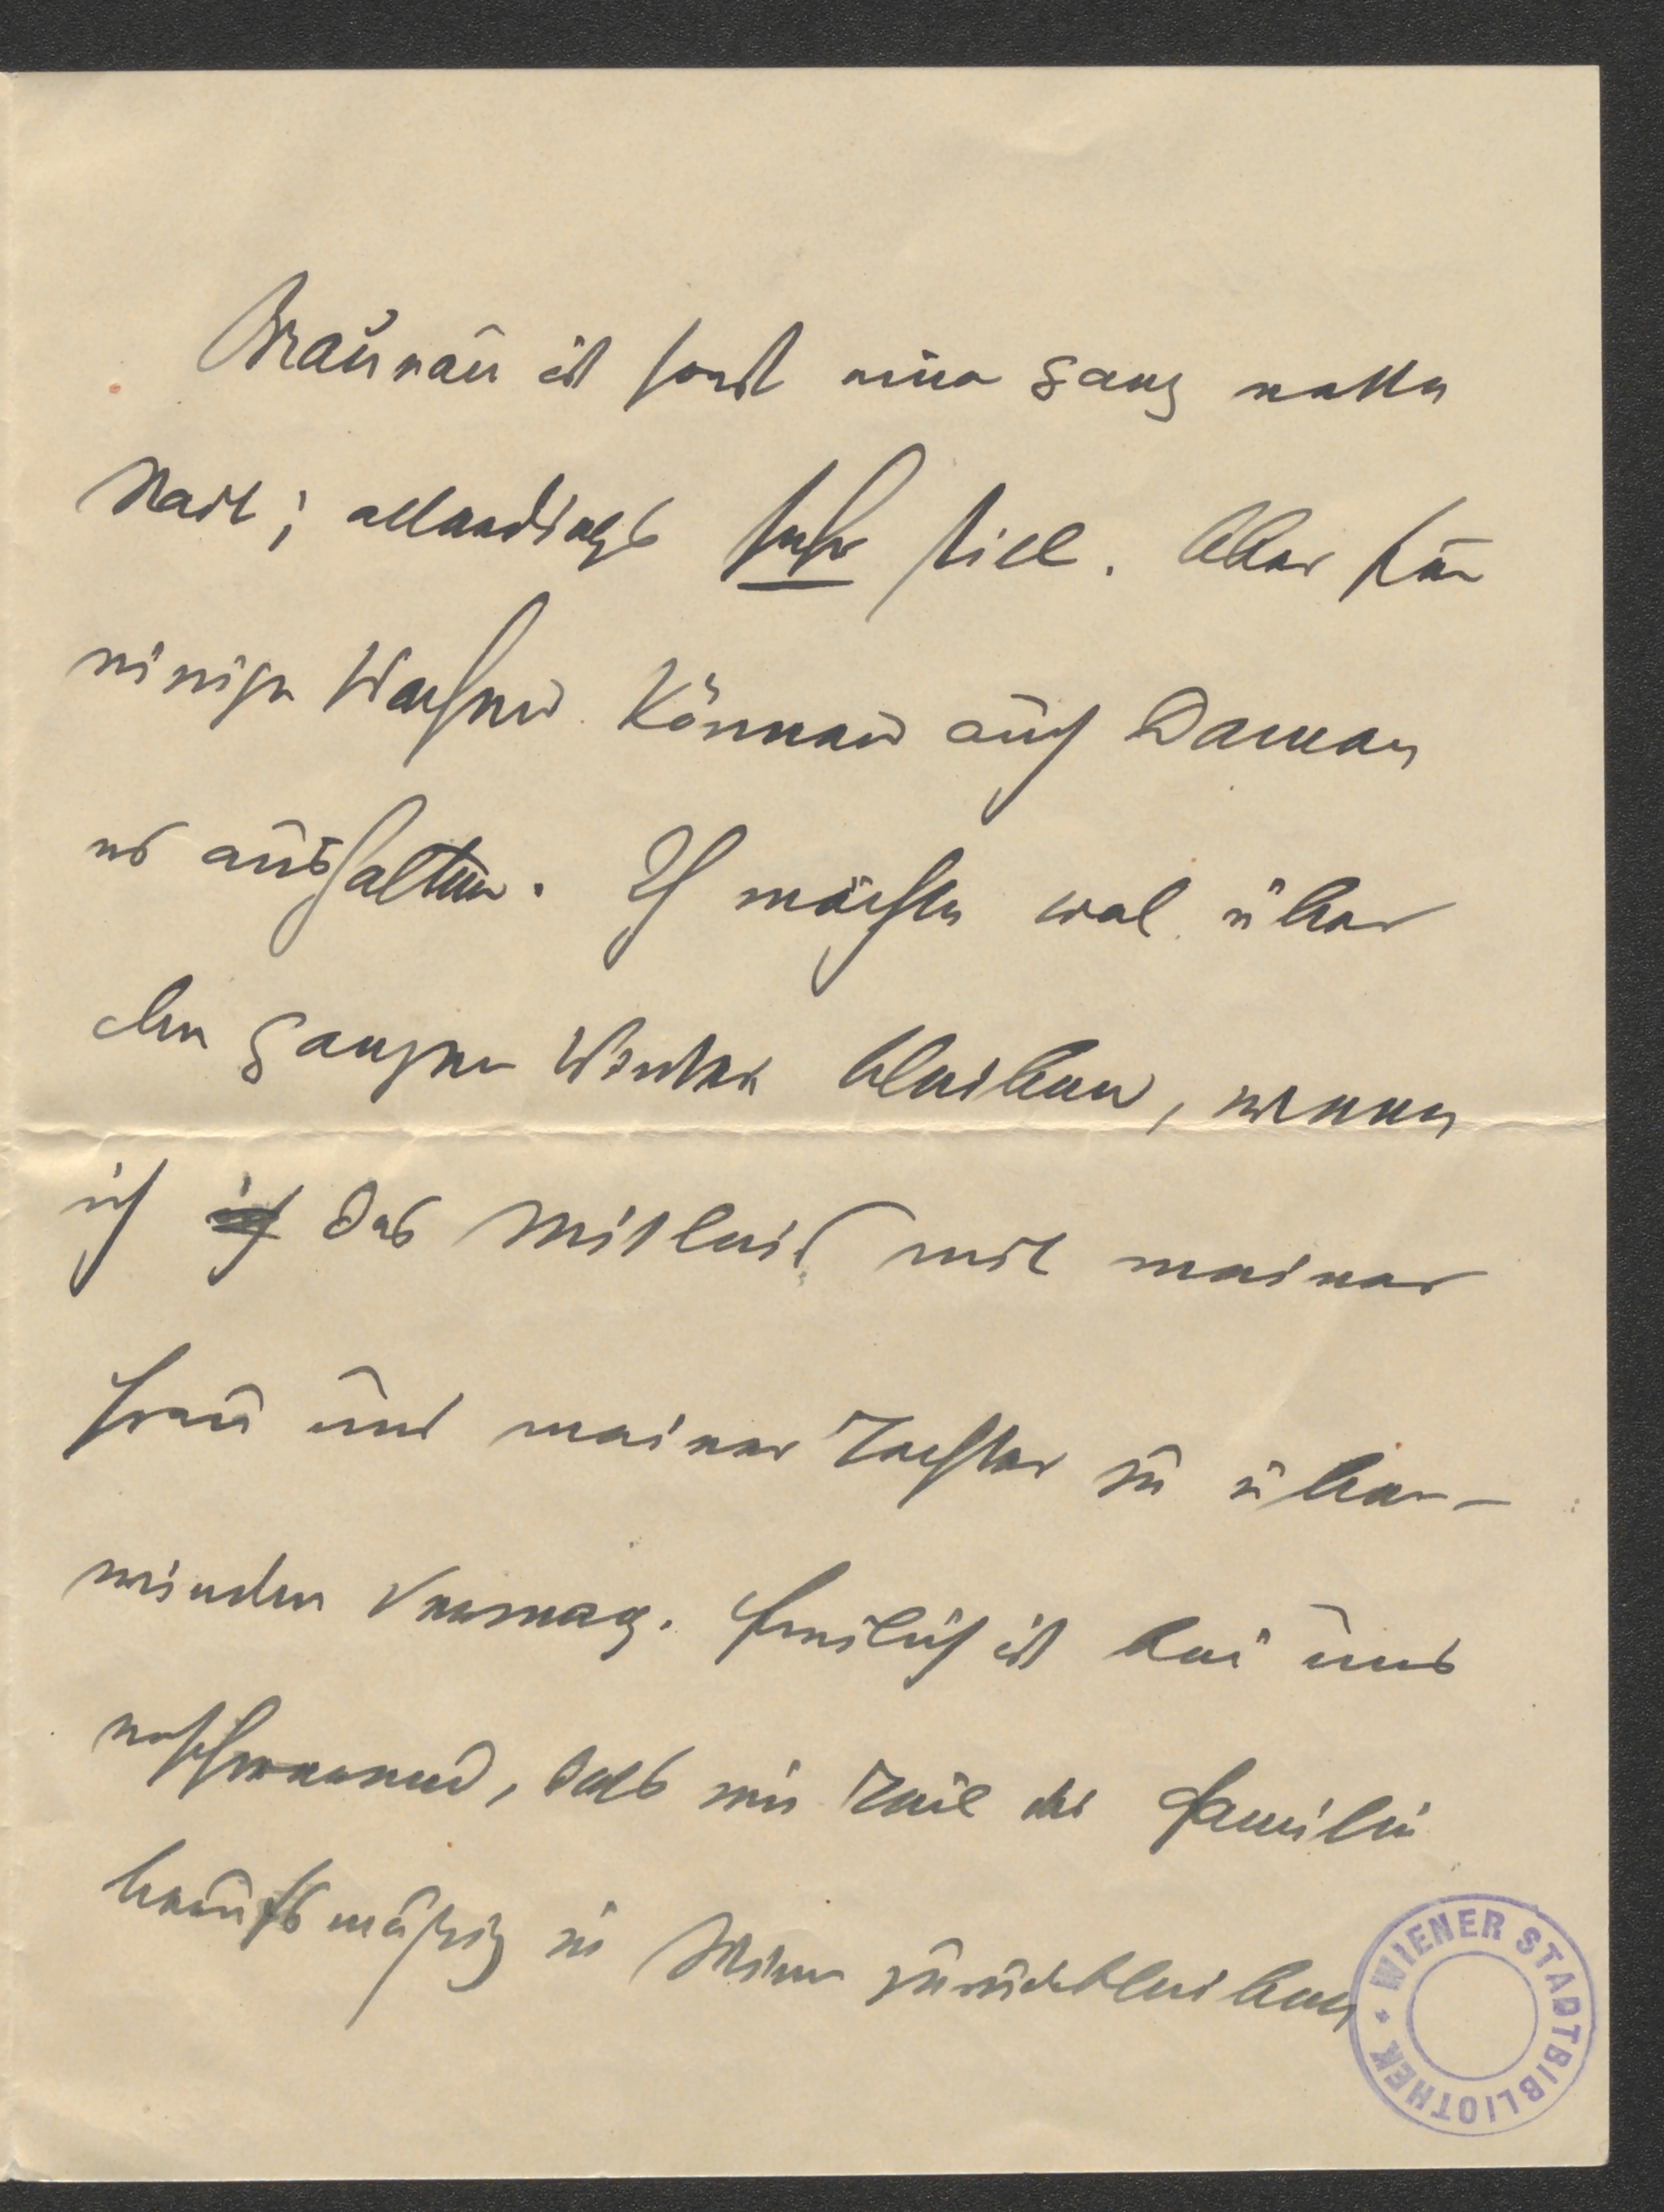 Braunau ist sonst eine ganz nette
Stadt; allerdings sehr still. Aber für
einige Wochen können auch Damen
es aushalten. Ich möchte wol über
den ganzen Winter bleiben, wenn
ich ich das Mitleid mit meiner
Frau und meiner Tochter zu über-
winden vermag. Freilich ist bei uns
erschwerend, daß ein Teil der Familie
berufsmäßig in Wien zurückbleiben
WIENER STADTBIBLIOTHEK